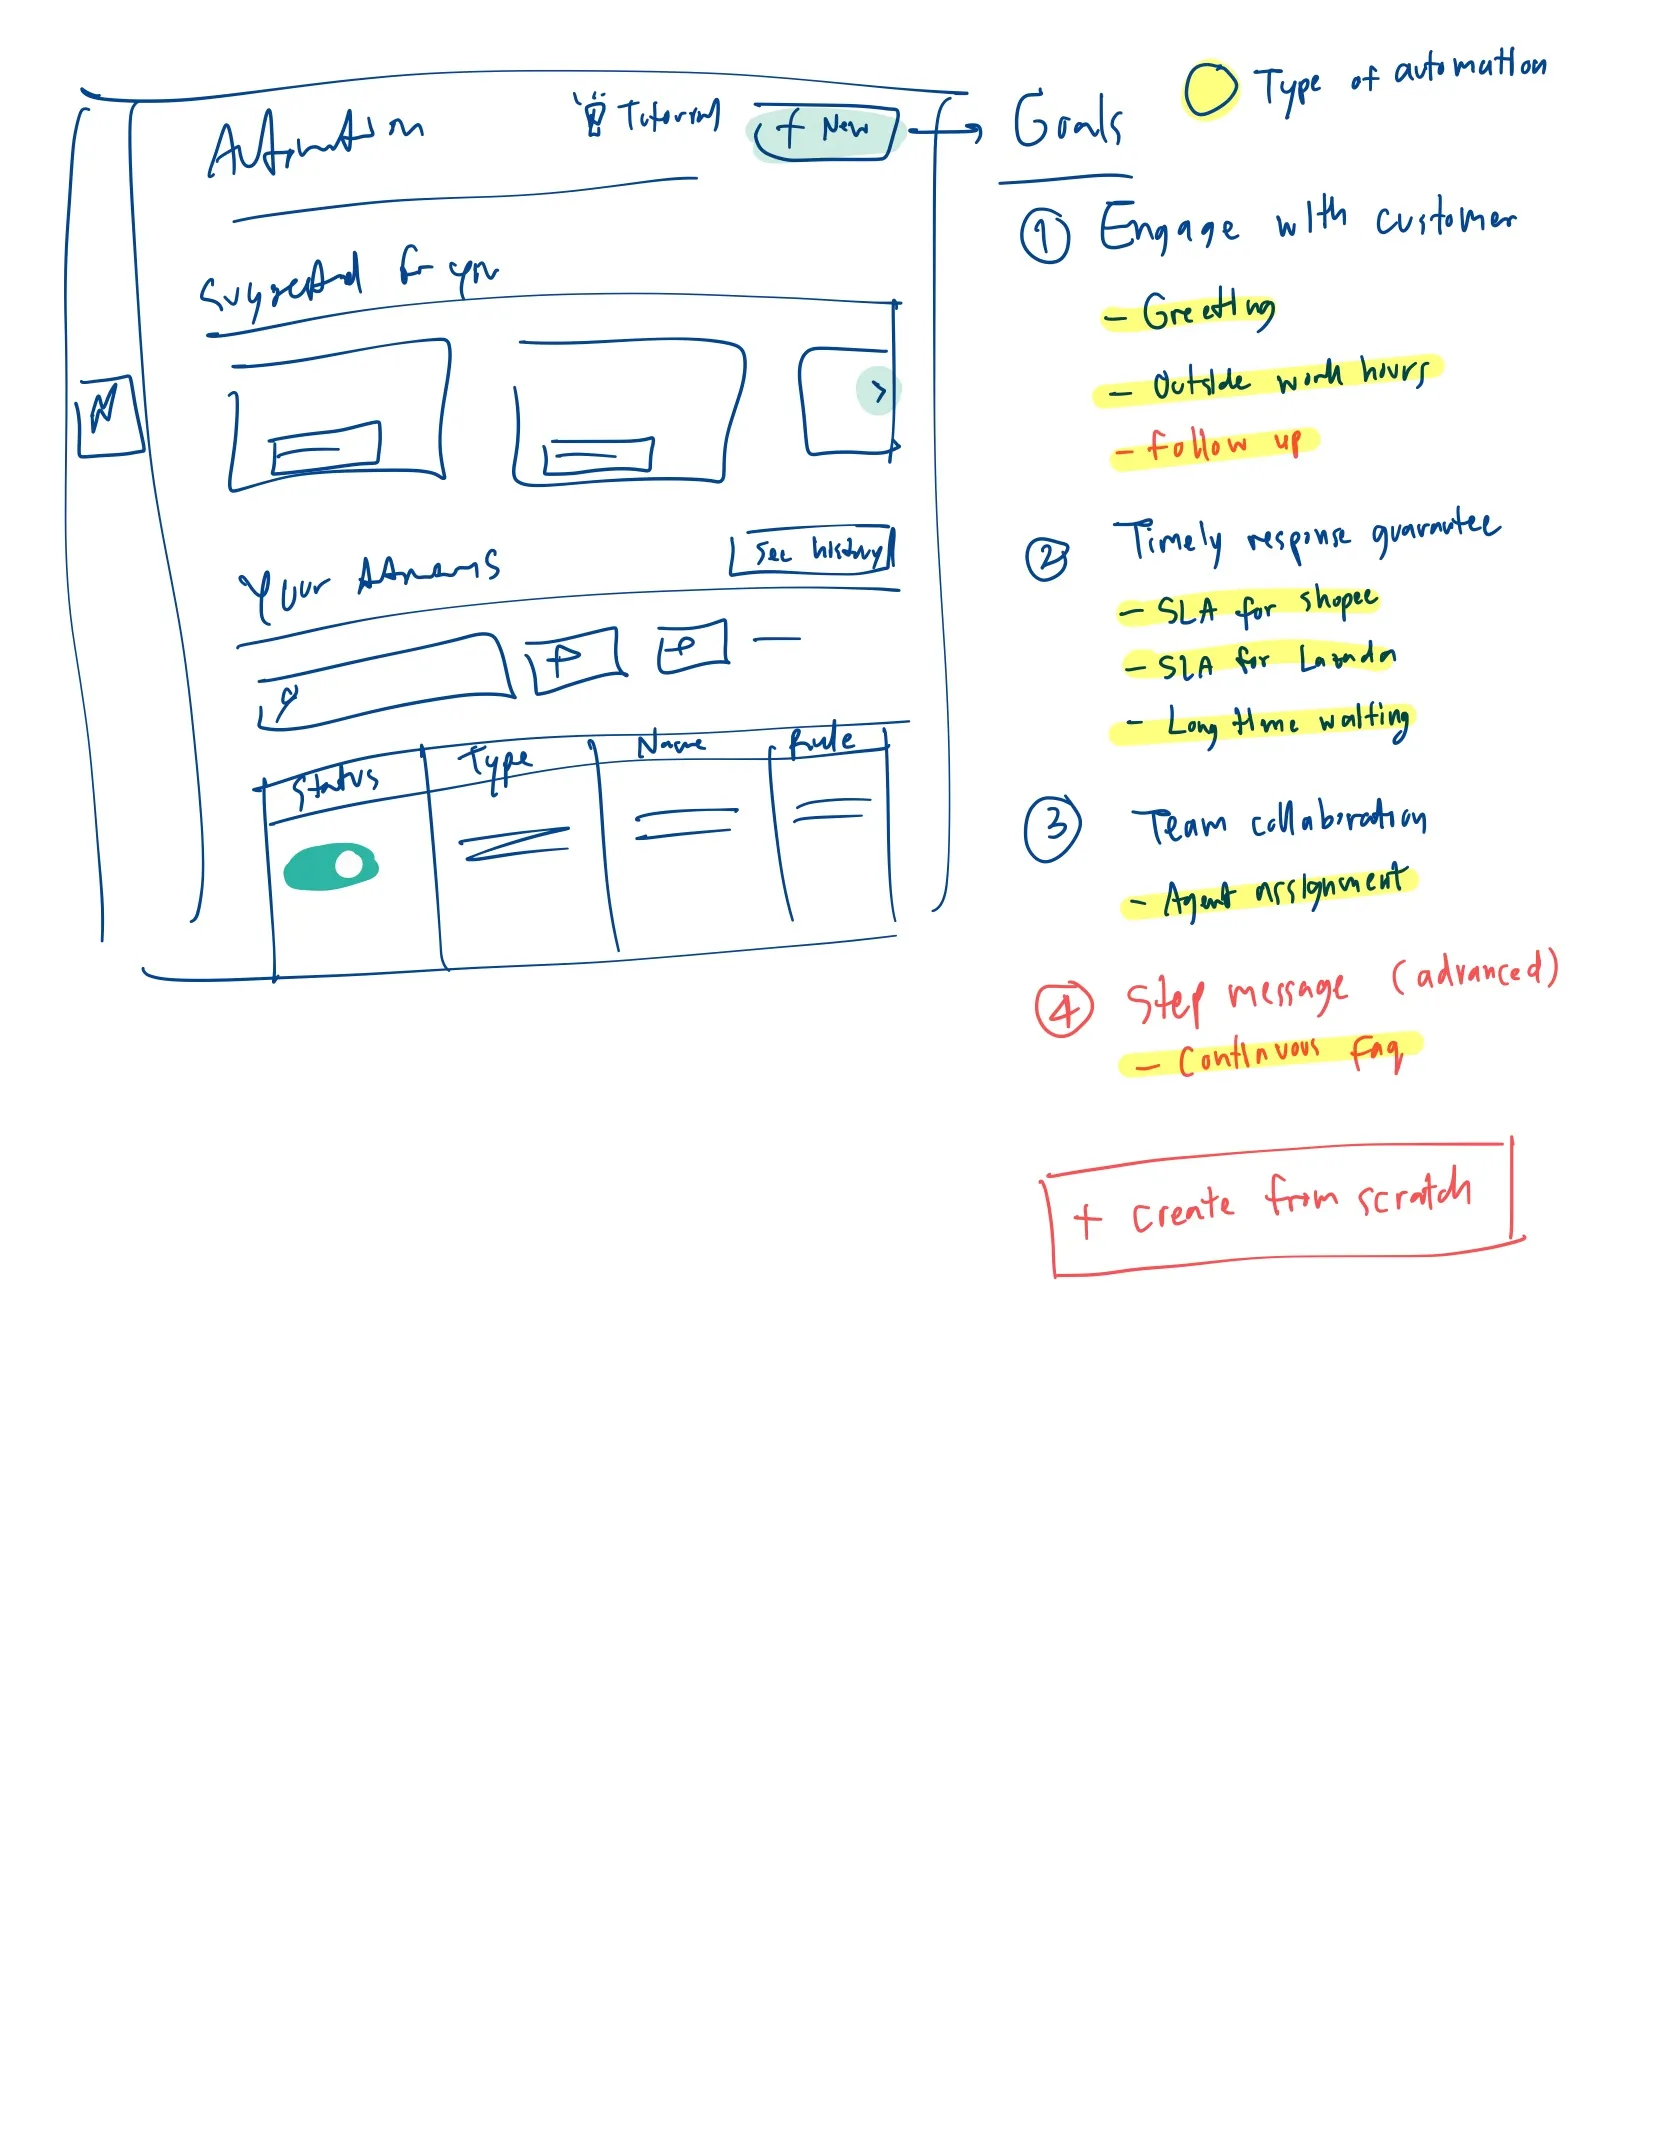 Automation
Tutorial
+ New
Suggested for you
>
Your
See history
Status
Type
Name
Rule
Type of automation
Goals
① Engage with customer
- Greeting
- Outside work hours
- Follow up
② Timely response guarantee
- SLA for shopee
- SLA for Lazada
- Long time waiting
③ Team collaboration
- Agent assignment
④ Step message (advanced)
- Continuous faq
+ create from scratch